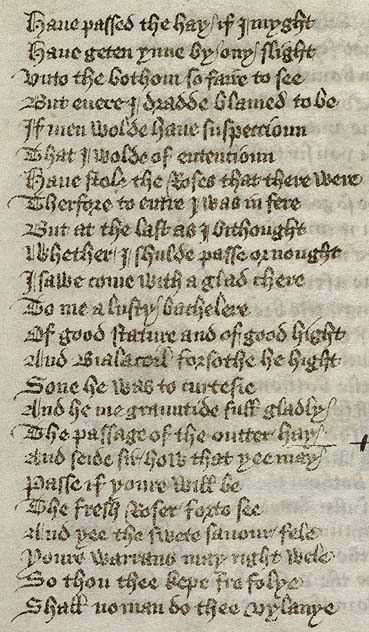 Haue passed the hay if I myght
Haue geten ynne by ony slight
Vnto the bothom so faire to see
But euere I dradde blamed to be
If men wolde haue suspeccioun
That I wolde of entencioun
Haue stole the Roses that there were
Therfore to entre I was in fere
But at the last as I bithought
Whether I shulde passe or nought
I sawe come with a glad chere
To me a lusty bachelere
Of good stature and of good hight
And Bialacoil forsothe he hight
Sone he was to curtesie
And he me grauntide full gladly
The passage of the outter hay
And seide sir how that yee may
Passe if youre will be
The fresh Roser forto see
And yee the swete sauour fele
Youre warrans may right wele
So thou thee kepe fro folye
Shall no man do thee vylanye